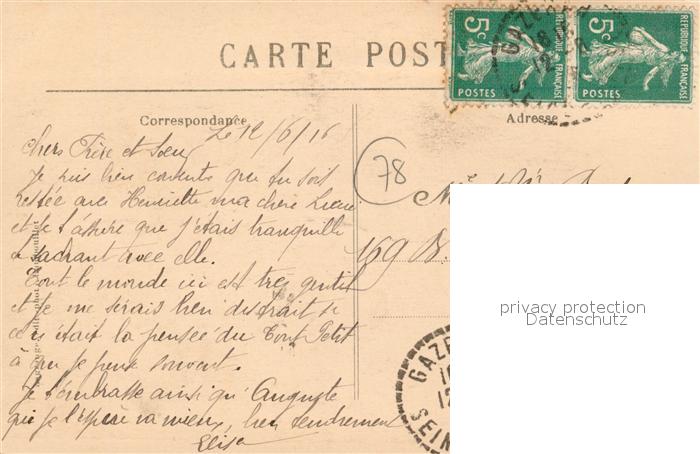 CARTE POST
5c
RÉPUBLIQUE FRANÇAISE
POSTES
5c
RÉPUBLIQUE FRANÇAISE
POSTES
Correspondance
Adresse
Le 12/6/16
78
Chers Frère et Soeur
Je suis bien contente que tu sois
restée avec Henriette ma chère
et je t'assure que j'étais tranquille
avec elle.
Tout le monde ici est très gentil
et je me serais bien distrait si
ce n'était la pensée du Tout Petit
à qui je pense souvent.
Je t'embrasse ainsi qu'Auguste
qui je l'espère va mieux, bien tendrement
Elisa
169 B.
GAZE
SEIN
privacy protection
Datenschutz